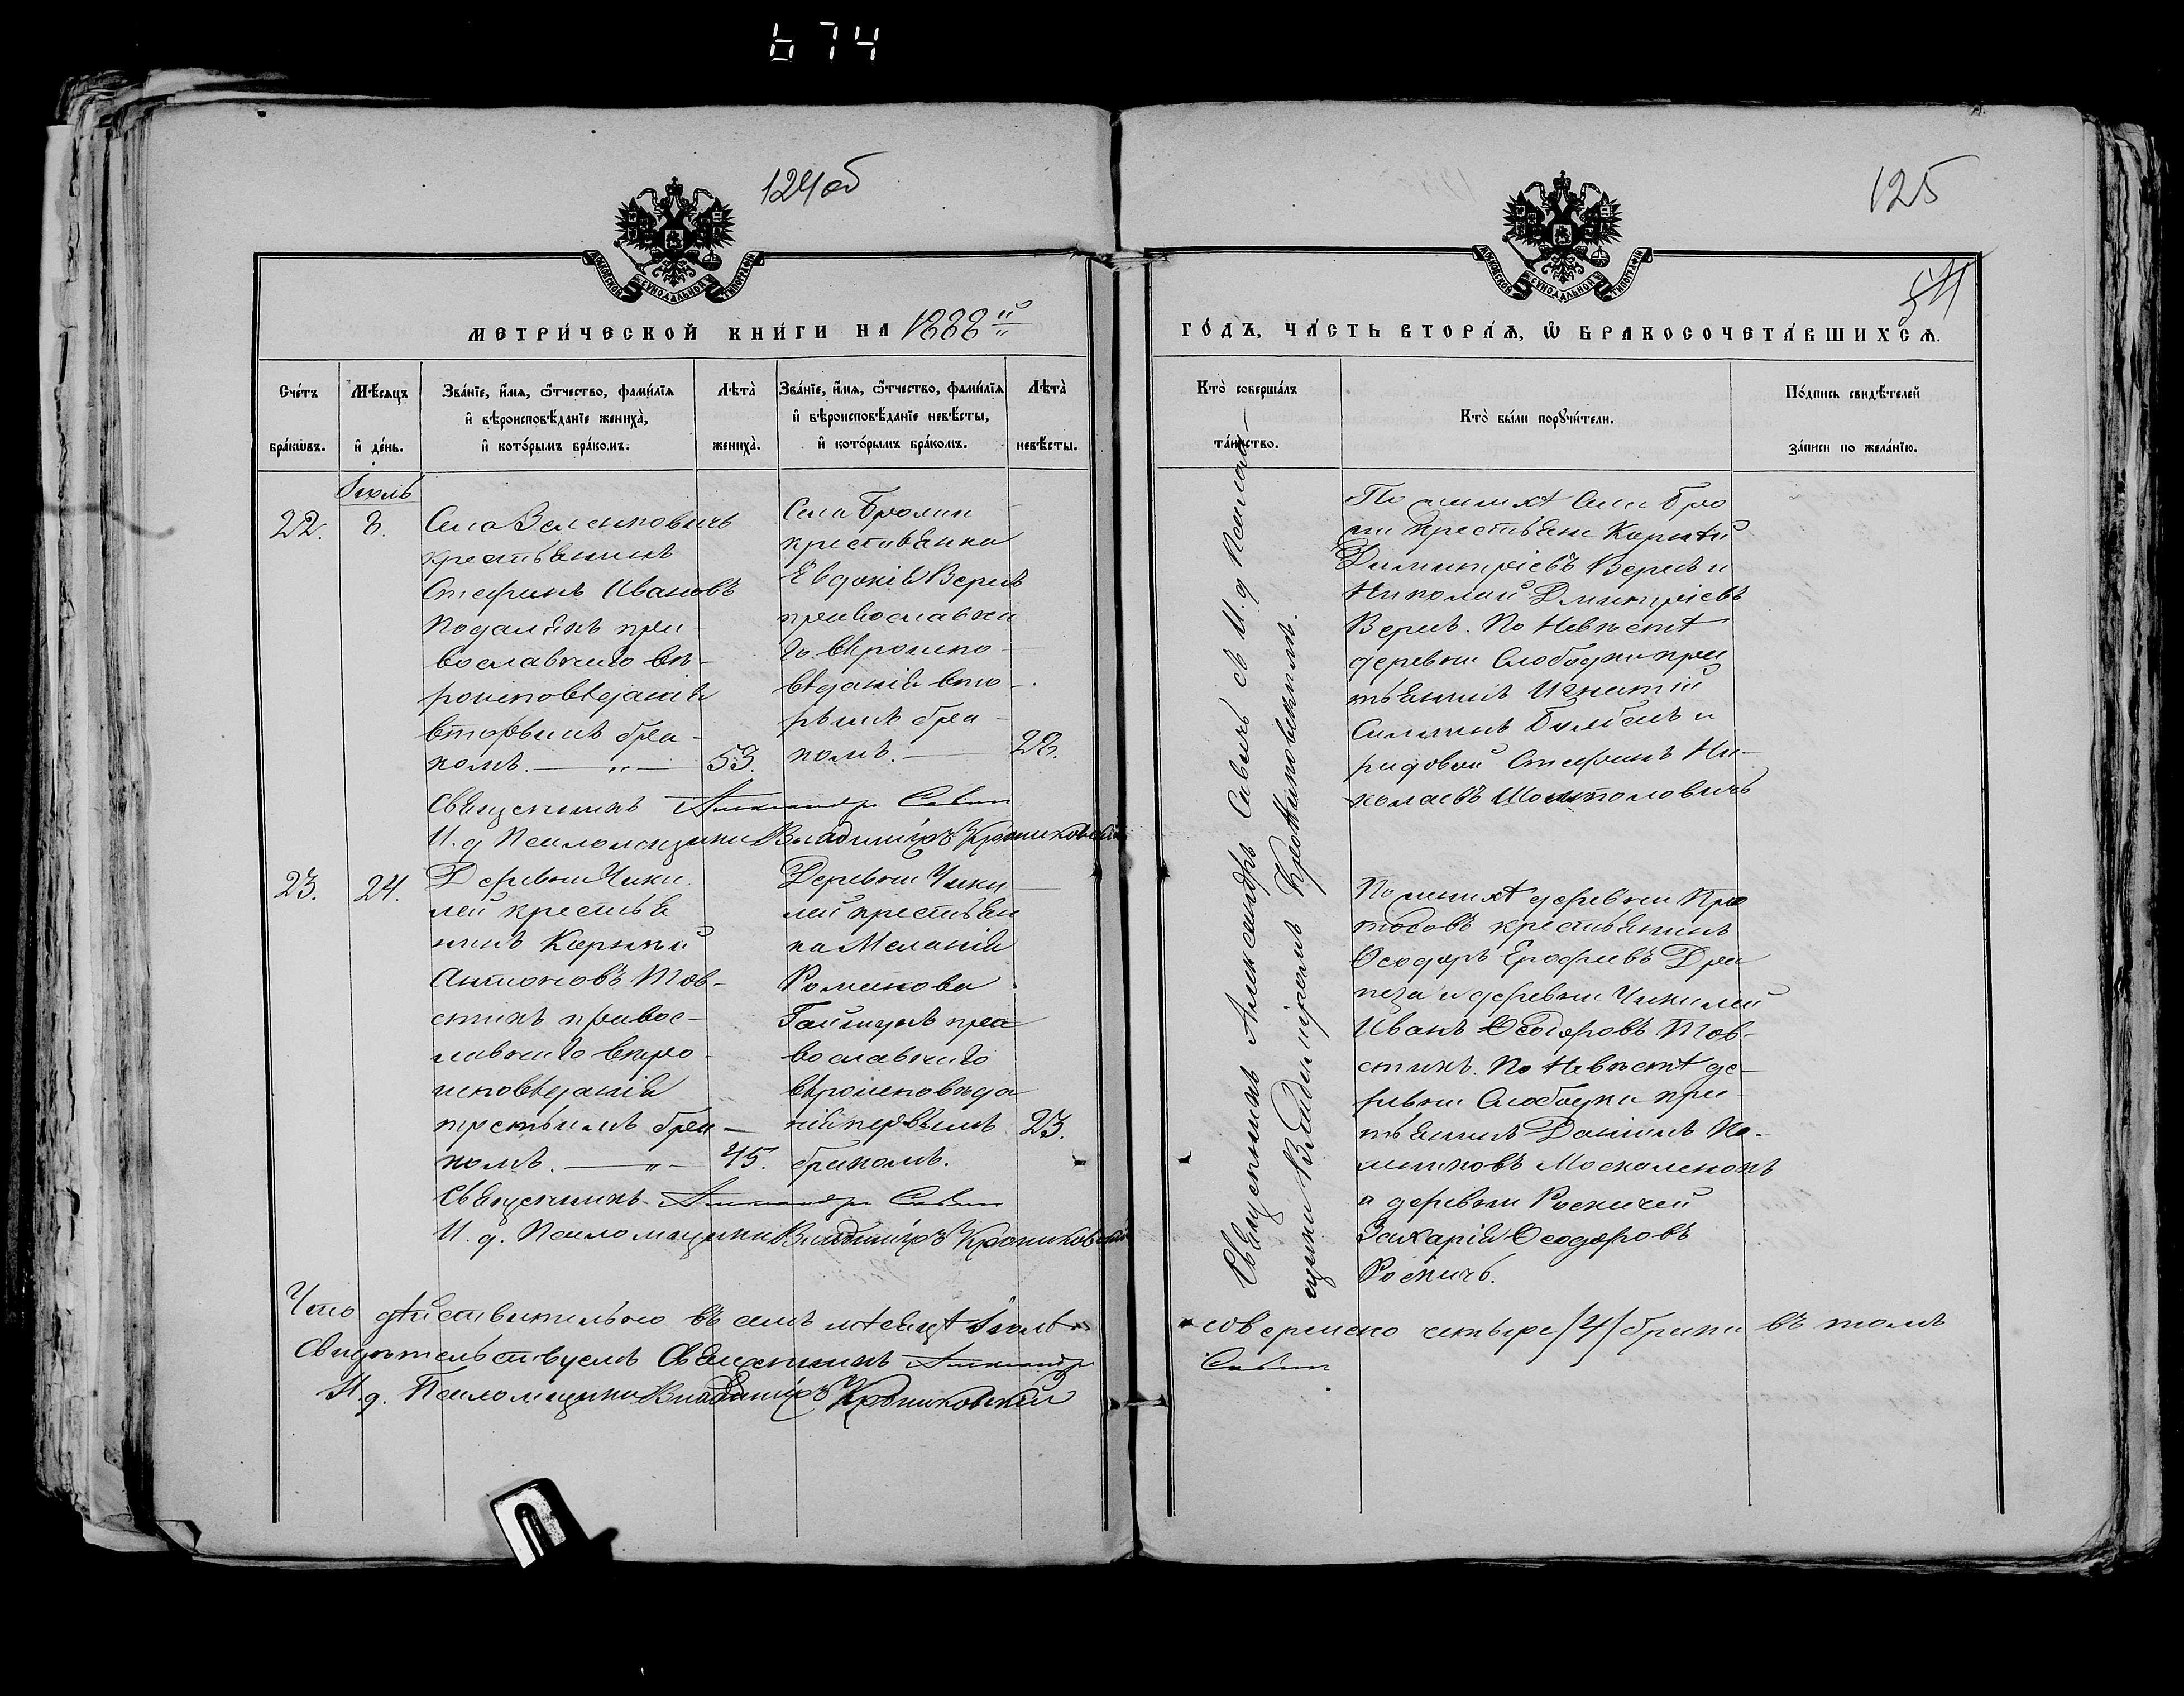 674
124об
МОСКОВСКОЙ СѴНОДАЛЬНОЙ ТИПОГРАФІИ
МЕТРИ́ЧЕСКОЙ КНИ́ГИ НА 1888й
Сче́тъ бра́кωвъ.
Мѣ́сяцъ и҆ де́нь.
Зва́нїе, и҆́мѧ, ѻ҆́тчество, фами́лїѧ
и҆ вѣроисповѣ́данїе жениха̀,
и҆ кото́рымъ бра́комъ.
Лѣта̀ жениха̀.
Зва́нїе, и҆́мѧ, ѻ҆́тчество, фами́лїѧ
и҆ вѣроисповѣ́данїе невѣ́сты,
и҆ кото́рымъ бра́комъ.
Лѣта̀ невѣ́сты.
Іюль
22.
8.
Села Велемковичъ
крестьянинъ
Стефанъ Ивановъ
Подалякъ пра-
вославнаго вѣ-
роисповѣданія
вторымъ бра-
комъ. — „ —
53.
Села
крестьянка
Евдокія Верешъ
православна
го вѣроиспо-
вѣданія вто-
рымъ бра-
комъ. —
28.
Священникъ Александръ Савичъ
И. д Псаломщика Владиміръ
23.
24.
Деревни Чики
лей крестья
нинъ Корнилій
Антоновъ Тов-
стикъ правос-
лавнаго вѣро-
исповѣданія
третьимъ бра-
комъ. — „ —
45.
Деревни Чики
лей крестьян
ка Меланія
Романова
Гайшунъ пра
вославнаго
вѣроисповѣда
нія первымъ
бракомъ.
23.
Священникъ Александръ Савичъ
И. д. Псаломщика Владиміръ
Что дѣйствительно въ семъ мѣсяцѣ Іюлѣ
Свидѣтельствуемъ Священникъ Александръ
И. д. Псаломщика Владиміръ
125
МОСКОВСКОЙ СѴНОДАЛЬНОЙ ТИПОГРАФІИ
ГО́ДЪ, ЧА́СТЬ ВТОРА́Ѧ, Ѽ БРАКОСОЧЕТА́ВШИХСѦ.
Кто̀ соверша́лъ та́инство.
Кто̀ бы́ли порꙋчи́тели.
По́дпись свидѣ́телей за́писи по жела́нїю.
Священникъ Александръ Савичъ съ И. д Псалом-
щика Владиміромъ
По женихѣ Села
крестьяне Корнѣй
Димитріевъ Верешъ и
Николай Дмитріевъ
Верешъ. По Невѣстѣ
деревни Слободки крес
тьянинъ Игнатій
и
рядовой Стефанъ Ни-
колаевъ
По женихѣ деревни Про
тасовъ крестьянинъ
Ѳеодоръ Ерофеевъ Дра
пеза и деревни Чикилей
Иванъ Ѳеодоровъ Тов-
стикъ. По Невѣстѣ де-
ревни Слободки крес
тьянинъ Даніилъ
Москаленокъ
а деревни Роскичей
Захарій Ѳеодоровъ
Роскичъ.
совершено четыре /4/ брака въ томъ
Савичъ